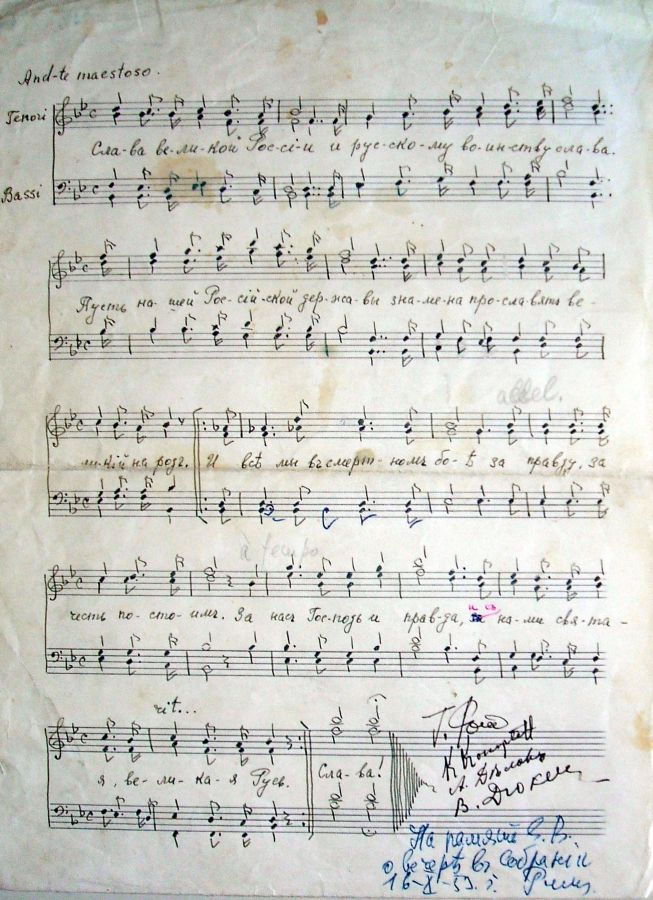 And-te maestoso.
Tenori
Сла-ва ве-ли-кой Рос-сі-и и рус-ско-му во-ин-ству сла-ва.
Bassi
Пусть на-шей Рос-сій-ской дер-жа-вы зна-ме-на про-сла-вятъ ве-
accel.
ли-кій на-родъ. И всѣ мы въ смерт-номъ бо-ѣ за правду, за
à tempo
честь по-сто-имъ. За насъ Гос-подь и прав-да, и съ на-ми свя-та-
rit...
я, ве-ли-ка-я Русь. Сла-ва!
Г.
К
А.
В.
На память Е. В.
о вечерѣ въ Собраніи
16-X-53 г.